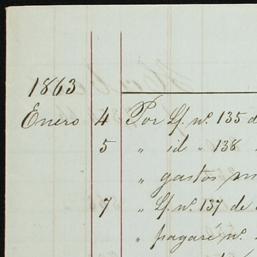 1863
Enero 4 Por Lf. nº. 135 d
5 " id " 138
" gastos
7 " Lf. nº. 137 de
" pagaré nº.